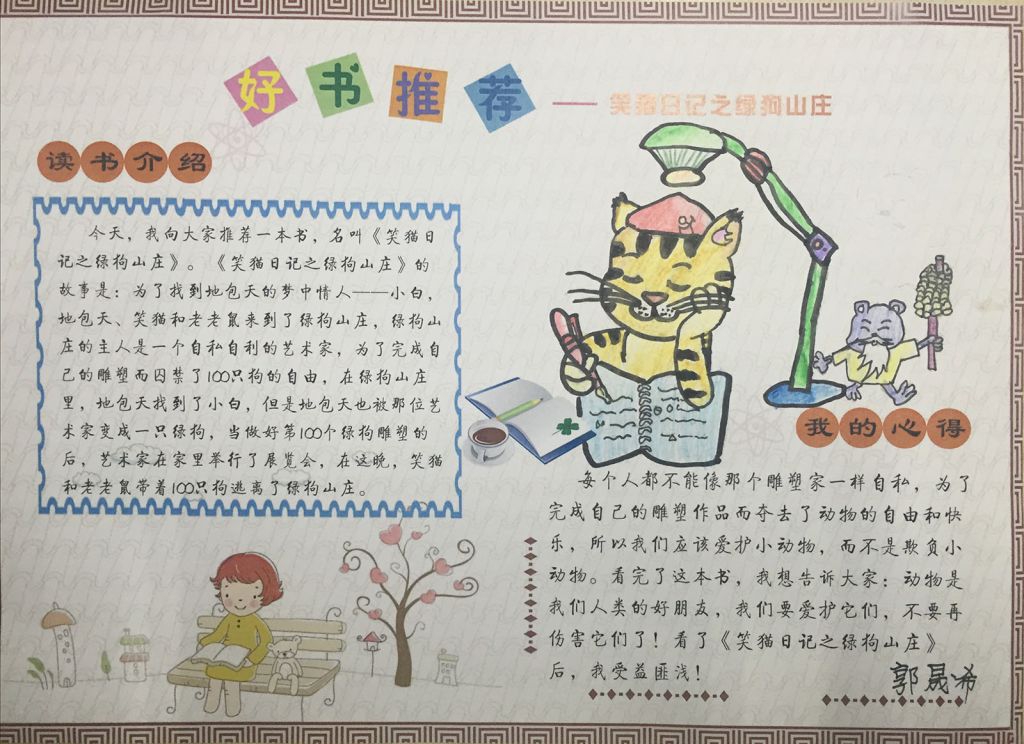 好书推荐——笑猫日记之绿狗山庄
读书介绍
今天，我向大家推荐一本书，名叫《笑猫日
记之绿狗山庄》。《笑猫日记之绿狗山庄》的
故事是：为了找到地包天的梦中情人——小白，
地包天、笑猫和老老鼠来到了绿狗山庄，绿狗山
庄的主人是一个自私自利的艺术家，为了完成自
己的雕塑而囚禁了100只狗的自由，在绿狗山庄
里，地包天找到了小白，但是地包天也被那位艺
术家变成一只绿狗，当做好第100个绿狗雕塑的
后，艺术家在家里举行了展览会，在这晚，笑猫
和老老鼠带着100只狗逃离了绿狗山庄。
我的心得
每个人都不能像那个雕塑家一样自私，为了
完成自己的雕塑作品而夺去了动物的自由和快
乐，所以我们应该爱护小动物，而不是欺负小
动物。看完了这本书，我想告诉大家：动物是
我们人类的好朋友，我们要爱护它们，不要再
伤害它们了！看了《笑猫日记之绿狗山庄》
后，我受益匪浅！
郭晟希